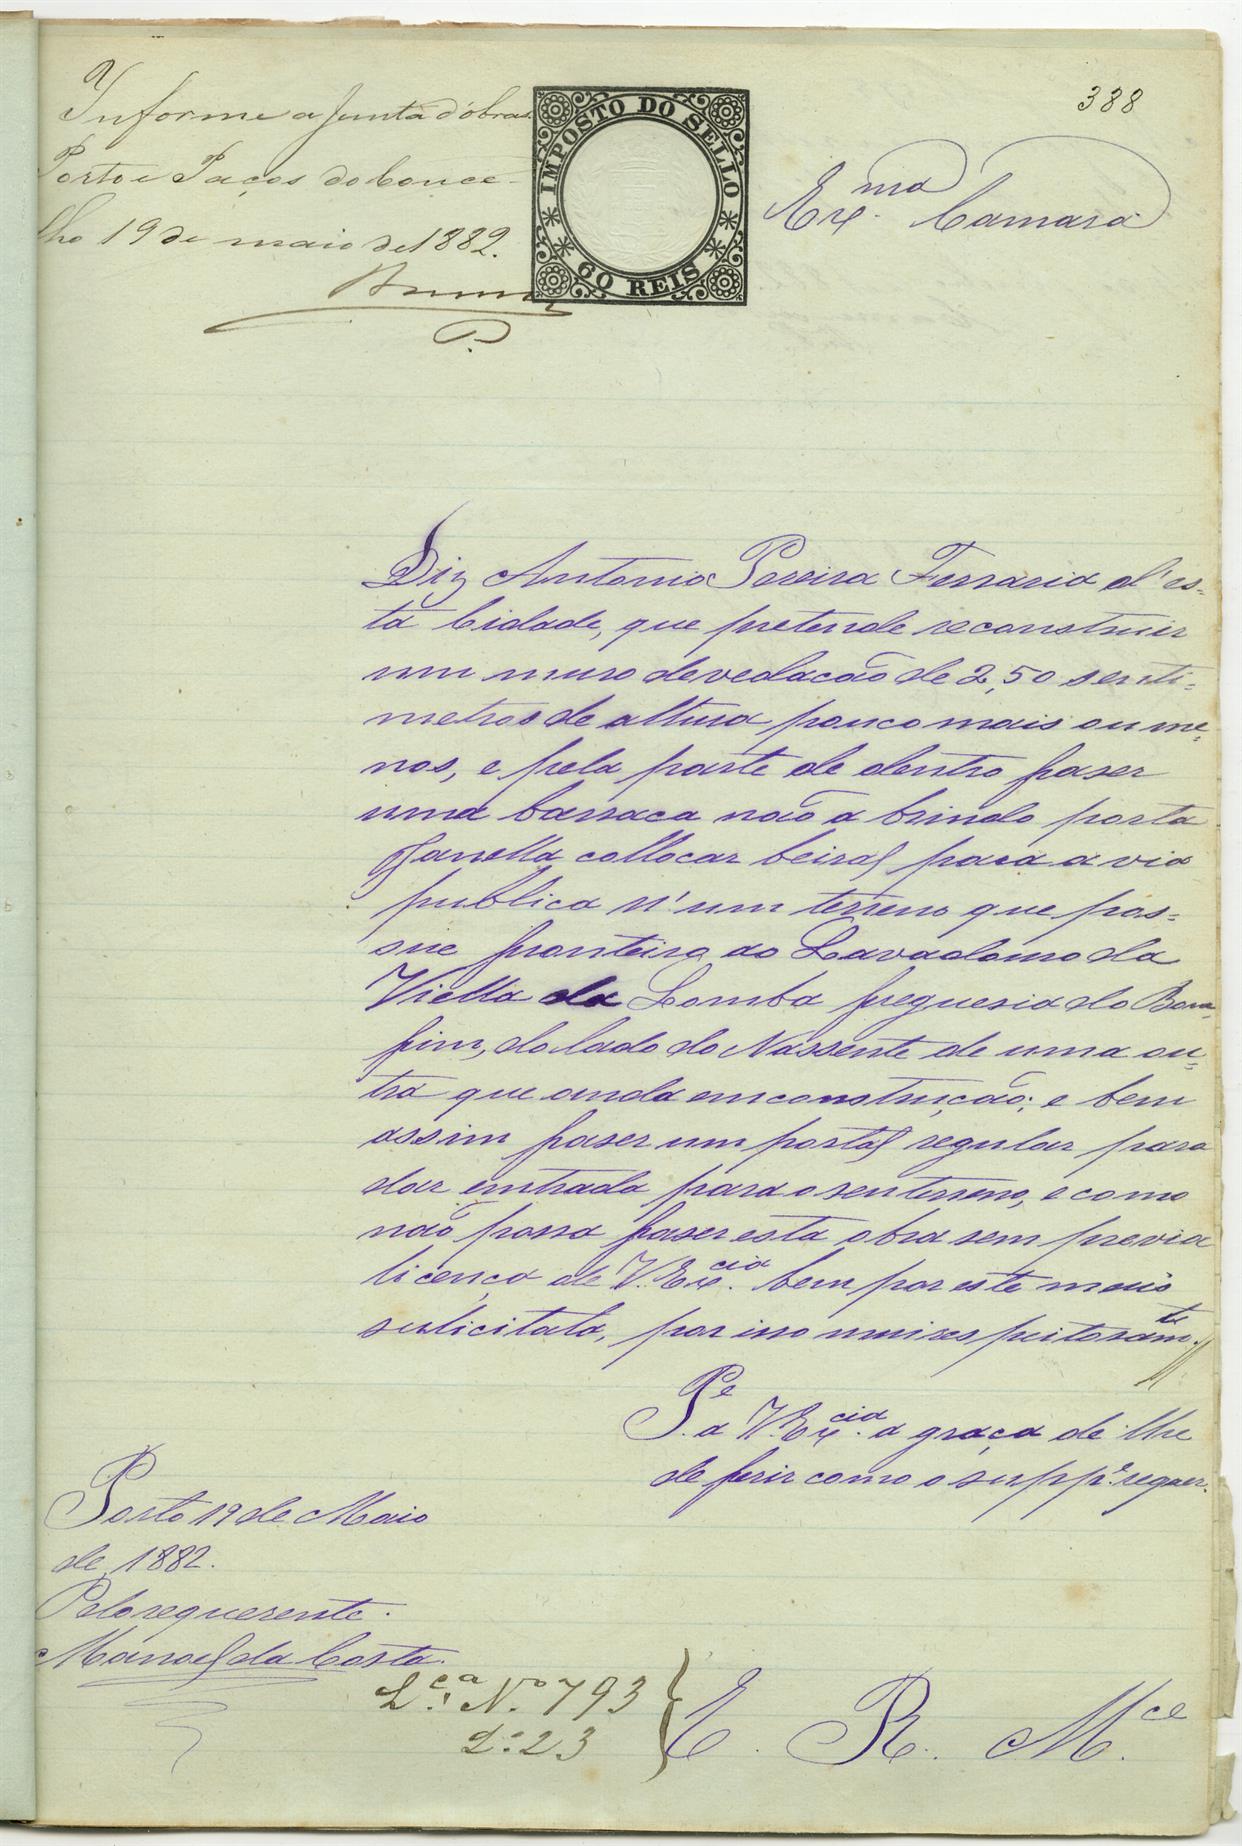 388
Informe a Junta d'obras.
Porto e Paços do Conce-
lho 19 de maio de 1882.
P.
IMPOSTO DO SELLO
60 REIS
Exma. Camara
Diz Antonio Pereira Ferraria d'es-
ta Cidade, que pretende reconstruir
um muro de vedacão de 2,50 senti-
metros de altura pouco mais ou me-
nos, e pela parte de dentro faser
uma barraca não a brindo porta
Janella collocar beiral para a via
publica n'um terreno que pos-
sue fronteiro ao Lavadouro da
Viella da Lomba freguesia do Bom
fim, do lado do Nassente de uma ou-
tra que anda em construção; e bem
assim faser um portal regular para
dar emtrada para o seu terreno, e como
não possa faser esta obra sem previa
licença de V. Excia. vem por este meio
sulicitala, por isso mui respeitosamte.
Pe. a V. Excia. a graça de lhe
de ferir como o suppe. requer.
Porto 19 de Maio
de 1882.
Pelo requerente.
Manoel da Costa.
Lca. No. 793
Lo. 23
E. R. Mce.